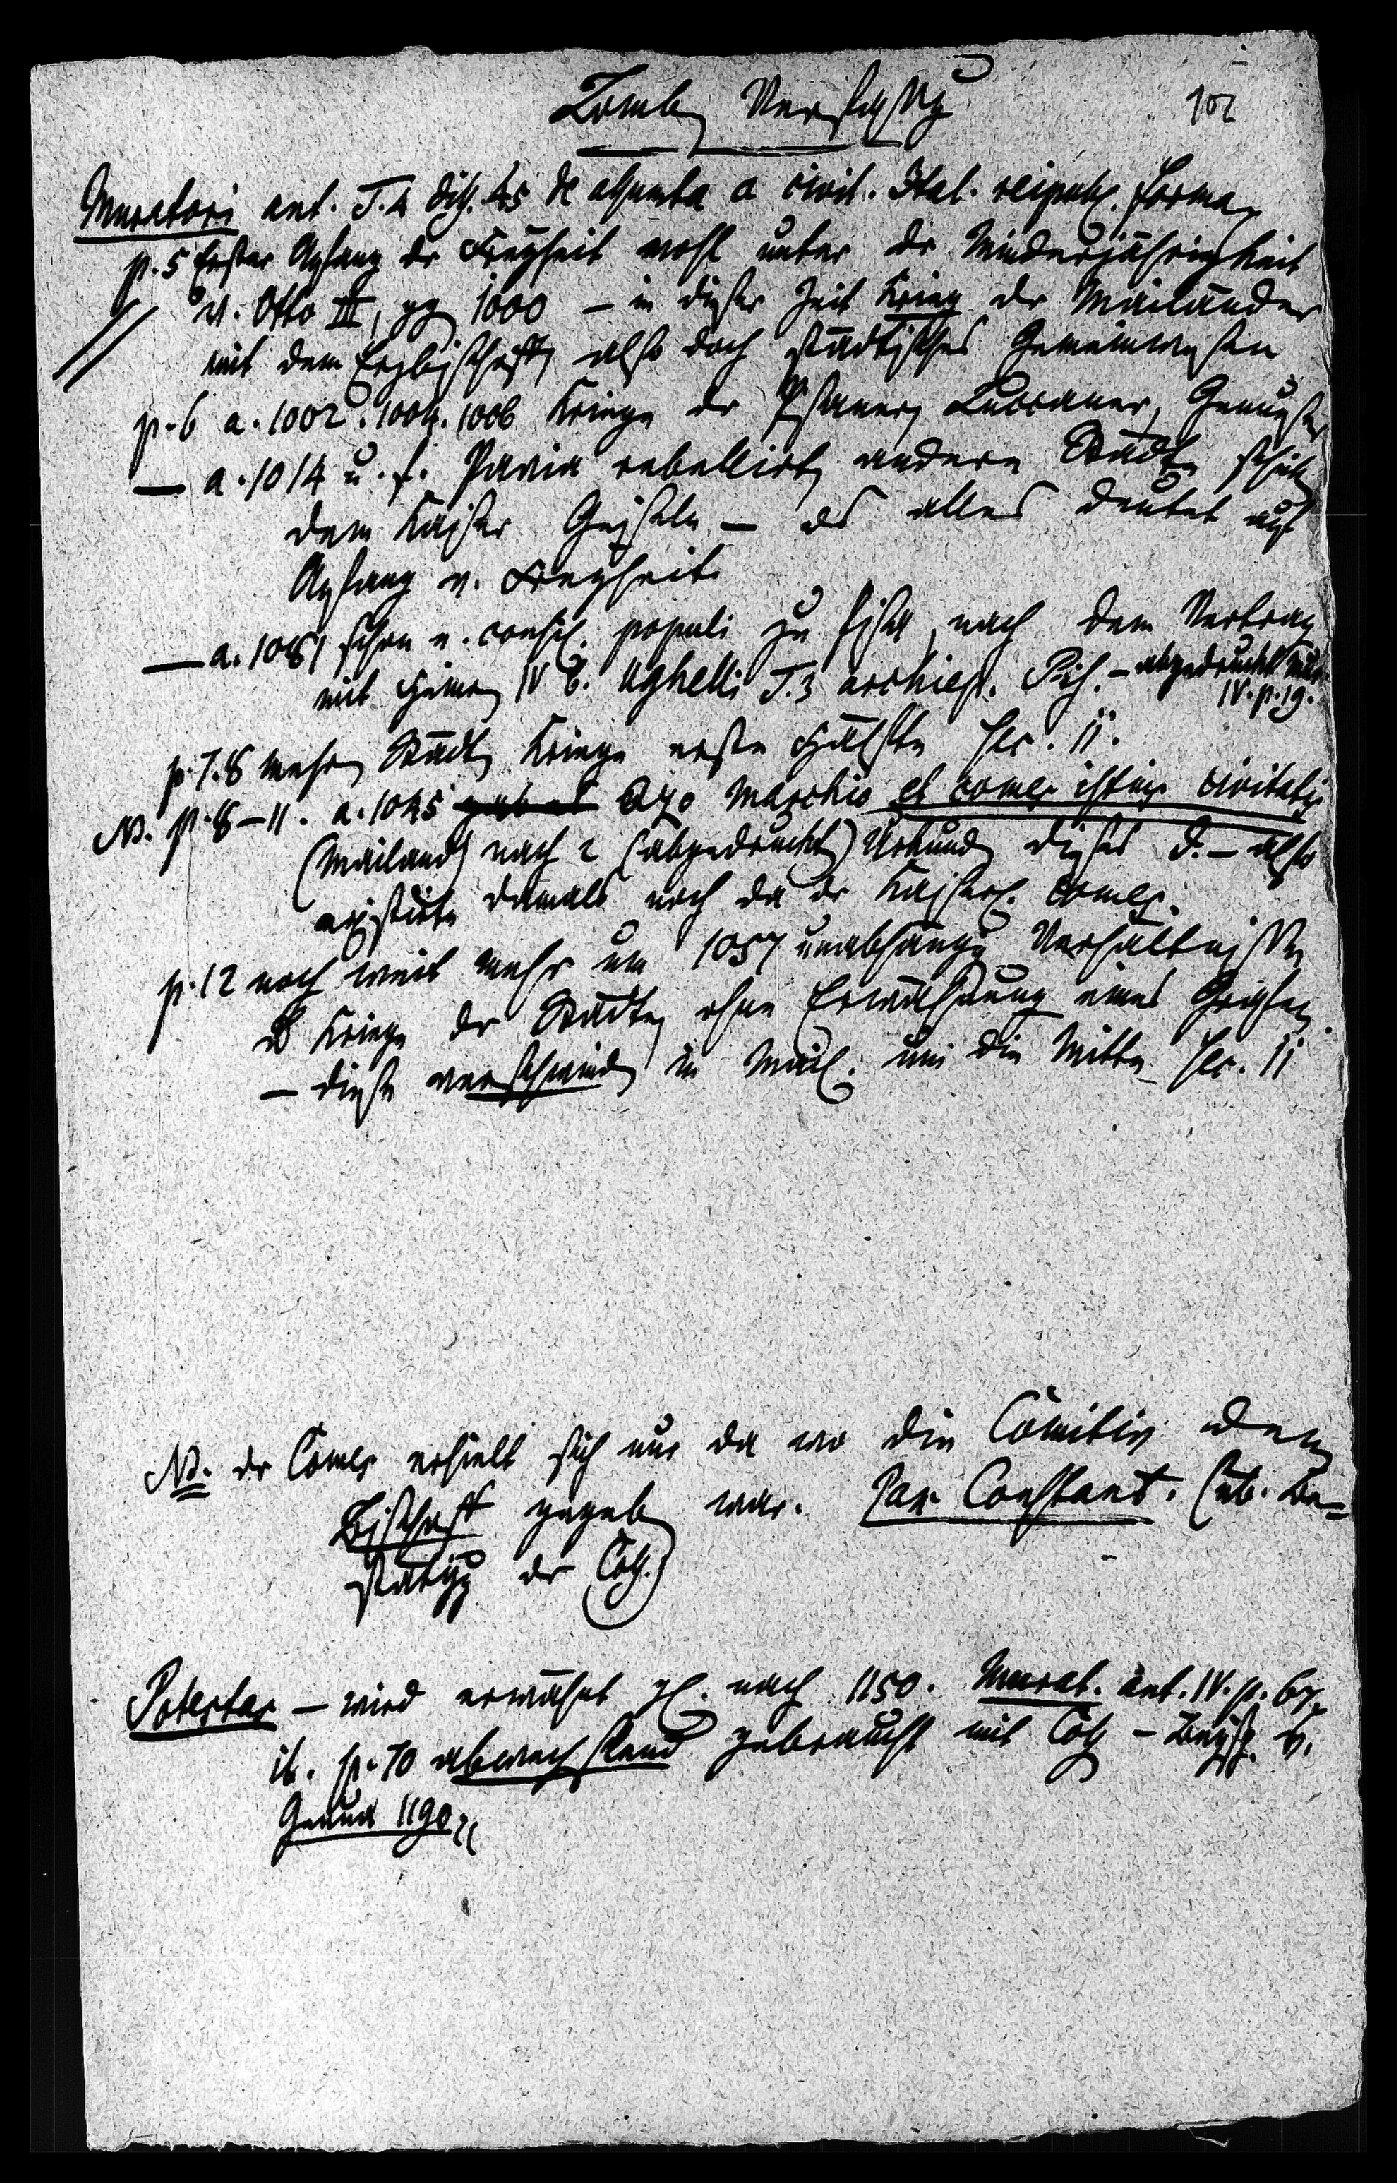 Lomb. Verfassung
102
Muratori ant. T. 4 diss. 45 de assumta a civit. Ital. reipubl. forma
p. 5 Erster Anfang der Freyheit wohl unter der Minderjährigkeit
v. Otto III, gg 1000 – in dieser Zeit Krieg der Mailänder
mit dem Erzbischoff, also doch städtisches Gemeinwesen
p. 6 a. 1002. 1004. 1006 Kriege der Pisaner, Luccaner, Genueser
— a. 1014 u. f. Pavia rebellirt, andere Städte schicken
dem Kaiser Geiseln – das alles deutet auf
Anfang v. Freyheit.
— a. 1081 schon e. consil. populi zu Pisa, nach dem Vertrag
mit Heinr. IV b. Ughelli T. 3 archiep. Pis. – abgedruckt Mur.
IV. p. 19.
p. 7. 8 mehr Städte Kriege erste Hälfte sec. 11.
NB. p. 8–11. a. 1045 Azo Marchio et comes istius civitatis
(Mailand) nach 2 (abgedruckten) Urkunden dieses J. – also
existirte damals noch da der Kaiserl. comes.
p. 12 noch weit mehr um 1057 unabhängige Verhältnisse
u. Kriege der Städte, ohne Erwähnung eines Grafen
– diese verschwinden in Mail. um die Mitte sec. 11
NB. der Comes erhielt sich nur da wo die Comitiv dem
Bischoff gegeben war. Pax Constant. (ub. Be-
stätigg der Coss.)
Potestas – wird erwähnt gl. nach 1150. Murat. ant. IV. p. 67.
ib. p. 70 abwechselnd gebraucht mit Coss – Beysp. v.
Genua 1190